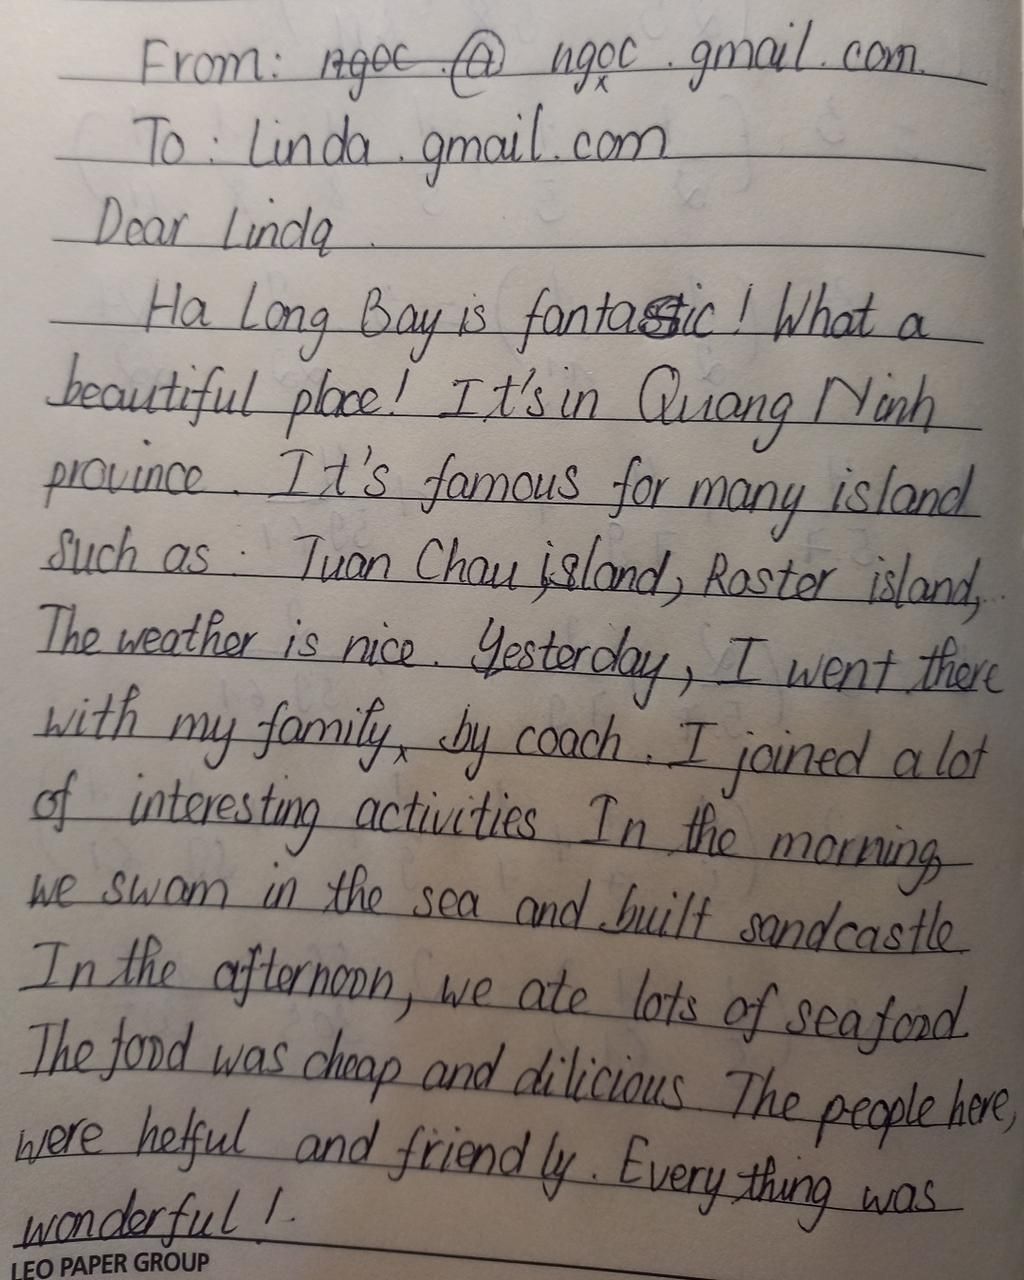 From: ngoc @ ngoc . gmail . com.
To : Linda . gmail . com
Dear Linda .
Ha Long Bay is fantastic ! What a
beautiful place! It's in Quang Ninh
province . It's famous for many island
such as : Tuan Chau island, Roster island,
The weather is nice . Yesterday, I went there
with my family, by coach . I joined a lot
of interesting activities In the morning,
we swam in the sea and built sandcastle
In the afternoon, we ate lots of seafood
The food was cheap and dilicious The people here,
were helful and friendly . Everything was
wonderful !.
LEO PAPER GROUP